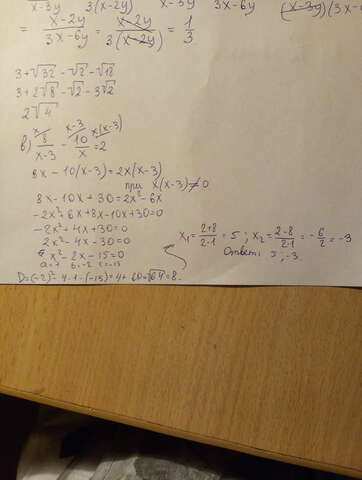 x-3y 3(x-2y) x-3y 3x-6y (x-3y)(3x-
= x-2y / 3x-6y = x-2y / 3(x-2y) = 1/3
3+√32-√2-√18
3+2√8-√2-3√2
2√4
в) 8/x-3 - 10/x = 2
x x-3 x(x-3)
8x-10(x-3)=2x(x-3)
при x(x-3)≠0
8x-10x+30=2x²-6x
-2x²+6x+8x-10x+30=0
-2x²+4x+30=0
2x²-4x-30=0
x²-2x-15=0
a=1 b=-2 c=-15
D=(-2)²-4·1·(-15)=4+60=√64=8
x₁=2+8/2·1=5; x₂=2-8/2·1=-6/2=-3
Ответ: 5; -3